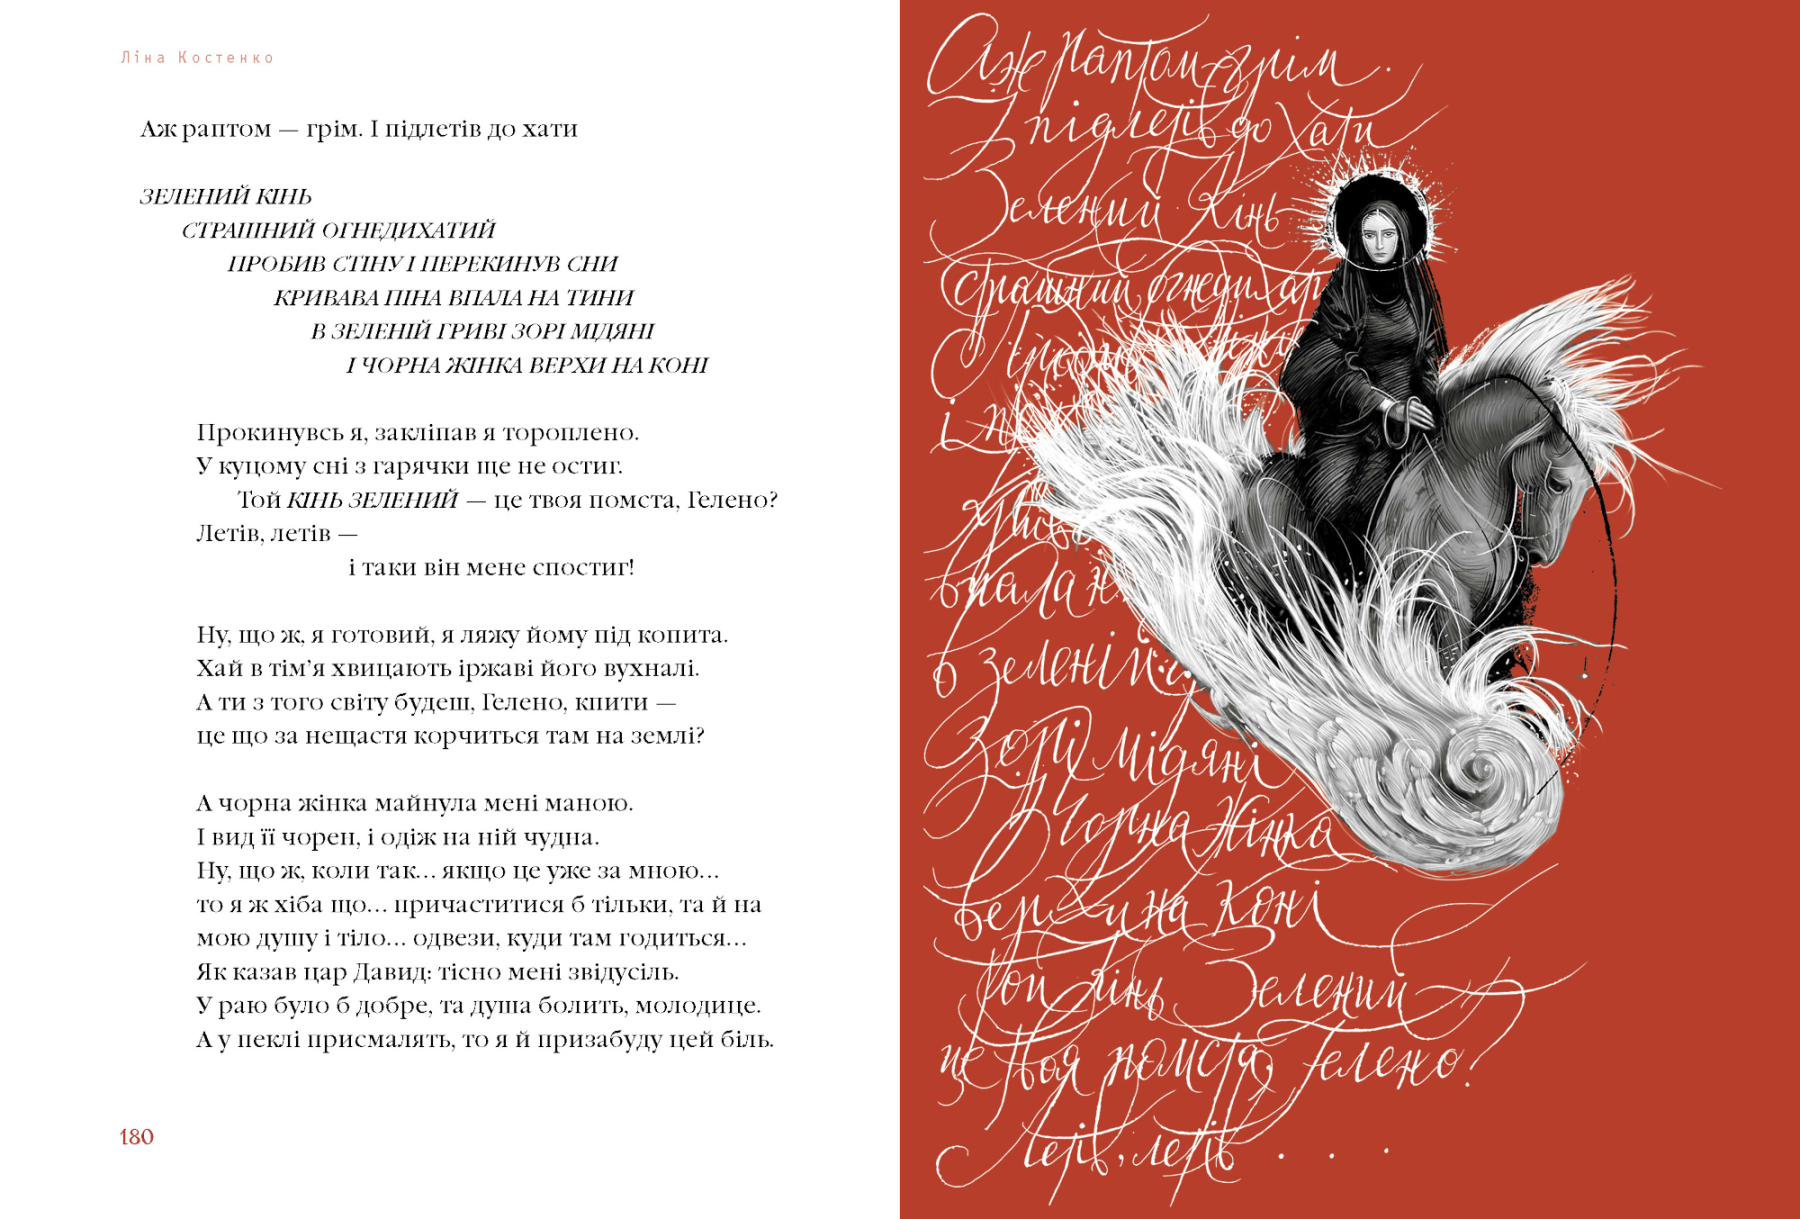 Ліна Костенко
Аж раптом — грім. І підлетів до хати
ЗЕЛЕНИЙ КІНЬ
СТРАШНИЙ ОГНЕДИХАТИЙ
ПРОБИВ СТІНУ І ПЕРЕКИНУВ СНИ
КРИВАВА ПІНА ВПАЛА НА ТИНИ
В ЗЕЛЕНІЙ ГРИВІ ЗОРІ МІДЯНІ
І ЧОРНА ЖІНКА ВЕРХИ НА КОНІ
Прокинувсь я, закліпав я тороплено.
У куцому сні з гарячки ще не остиг.
Той КІНЬ ЗЕЛЕНИЙ — це твоя помста, Гелено?
Летів, летів —
і таки він мене спостиг!
Ну, що ж, я готовий, я ляжу йому під копита.
Хай в тім’я хвицають іржаві його вухналі.
А ти з того світу будеш, Гелено, кпити —
це що за нещастя корчиться там на землі?
А чорна жінка майнула мені маною.
І вид її чорен, і одіж на ній чудна.
Ну, що ж, коли так... якщо це уже за мною...
то я ж хіба що... причаститися б тільки, та й на
мою душу і тіло... одвези, куди там годиться...
Як казав цар Давид: тісно мені звідусіль.
У раю було б добре, та душа болить, молодице.
А у пеклі присмалять, то я й призабуду цей біль.
180
Аж раптом — грім.
І підлетів до хати
Зелений Кінь
страшний огнедихат
впала н
в зеленій
Зорі мідяні
І Чорна Жінка
верхи на Коні
Той Кінь Зелений —
це твоя помста, Гелено?
Летів, летів . . .